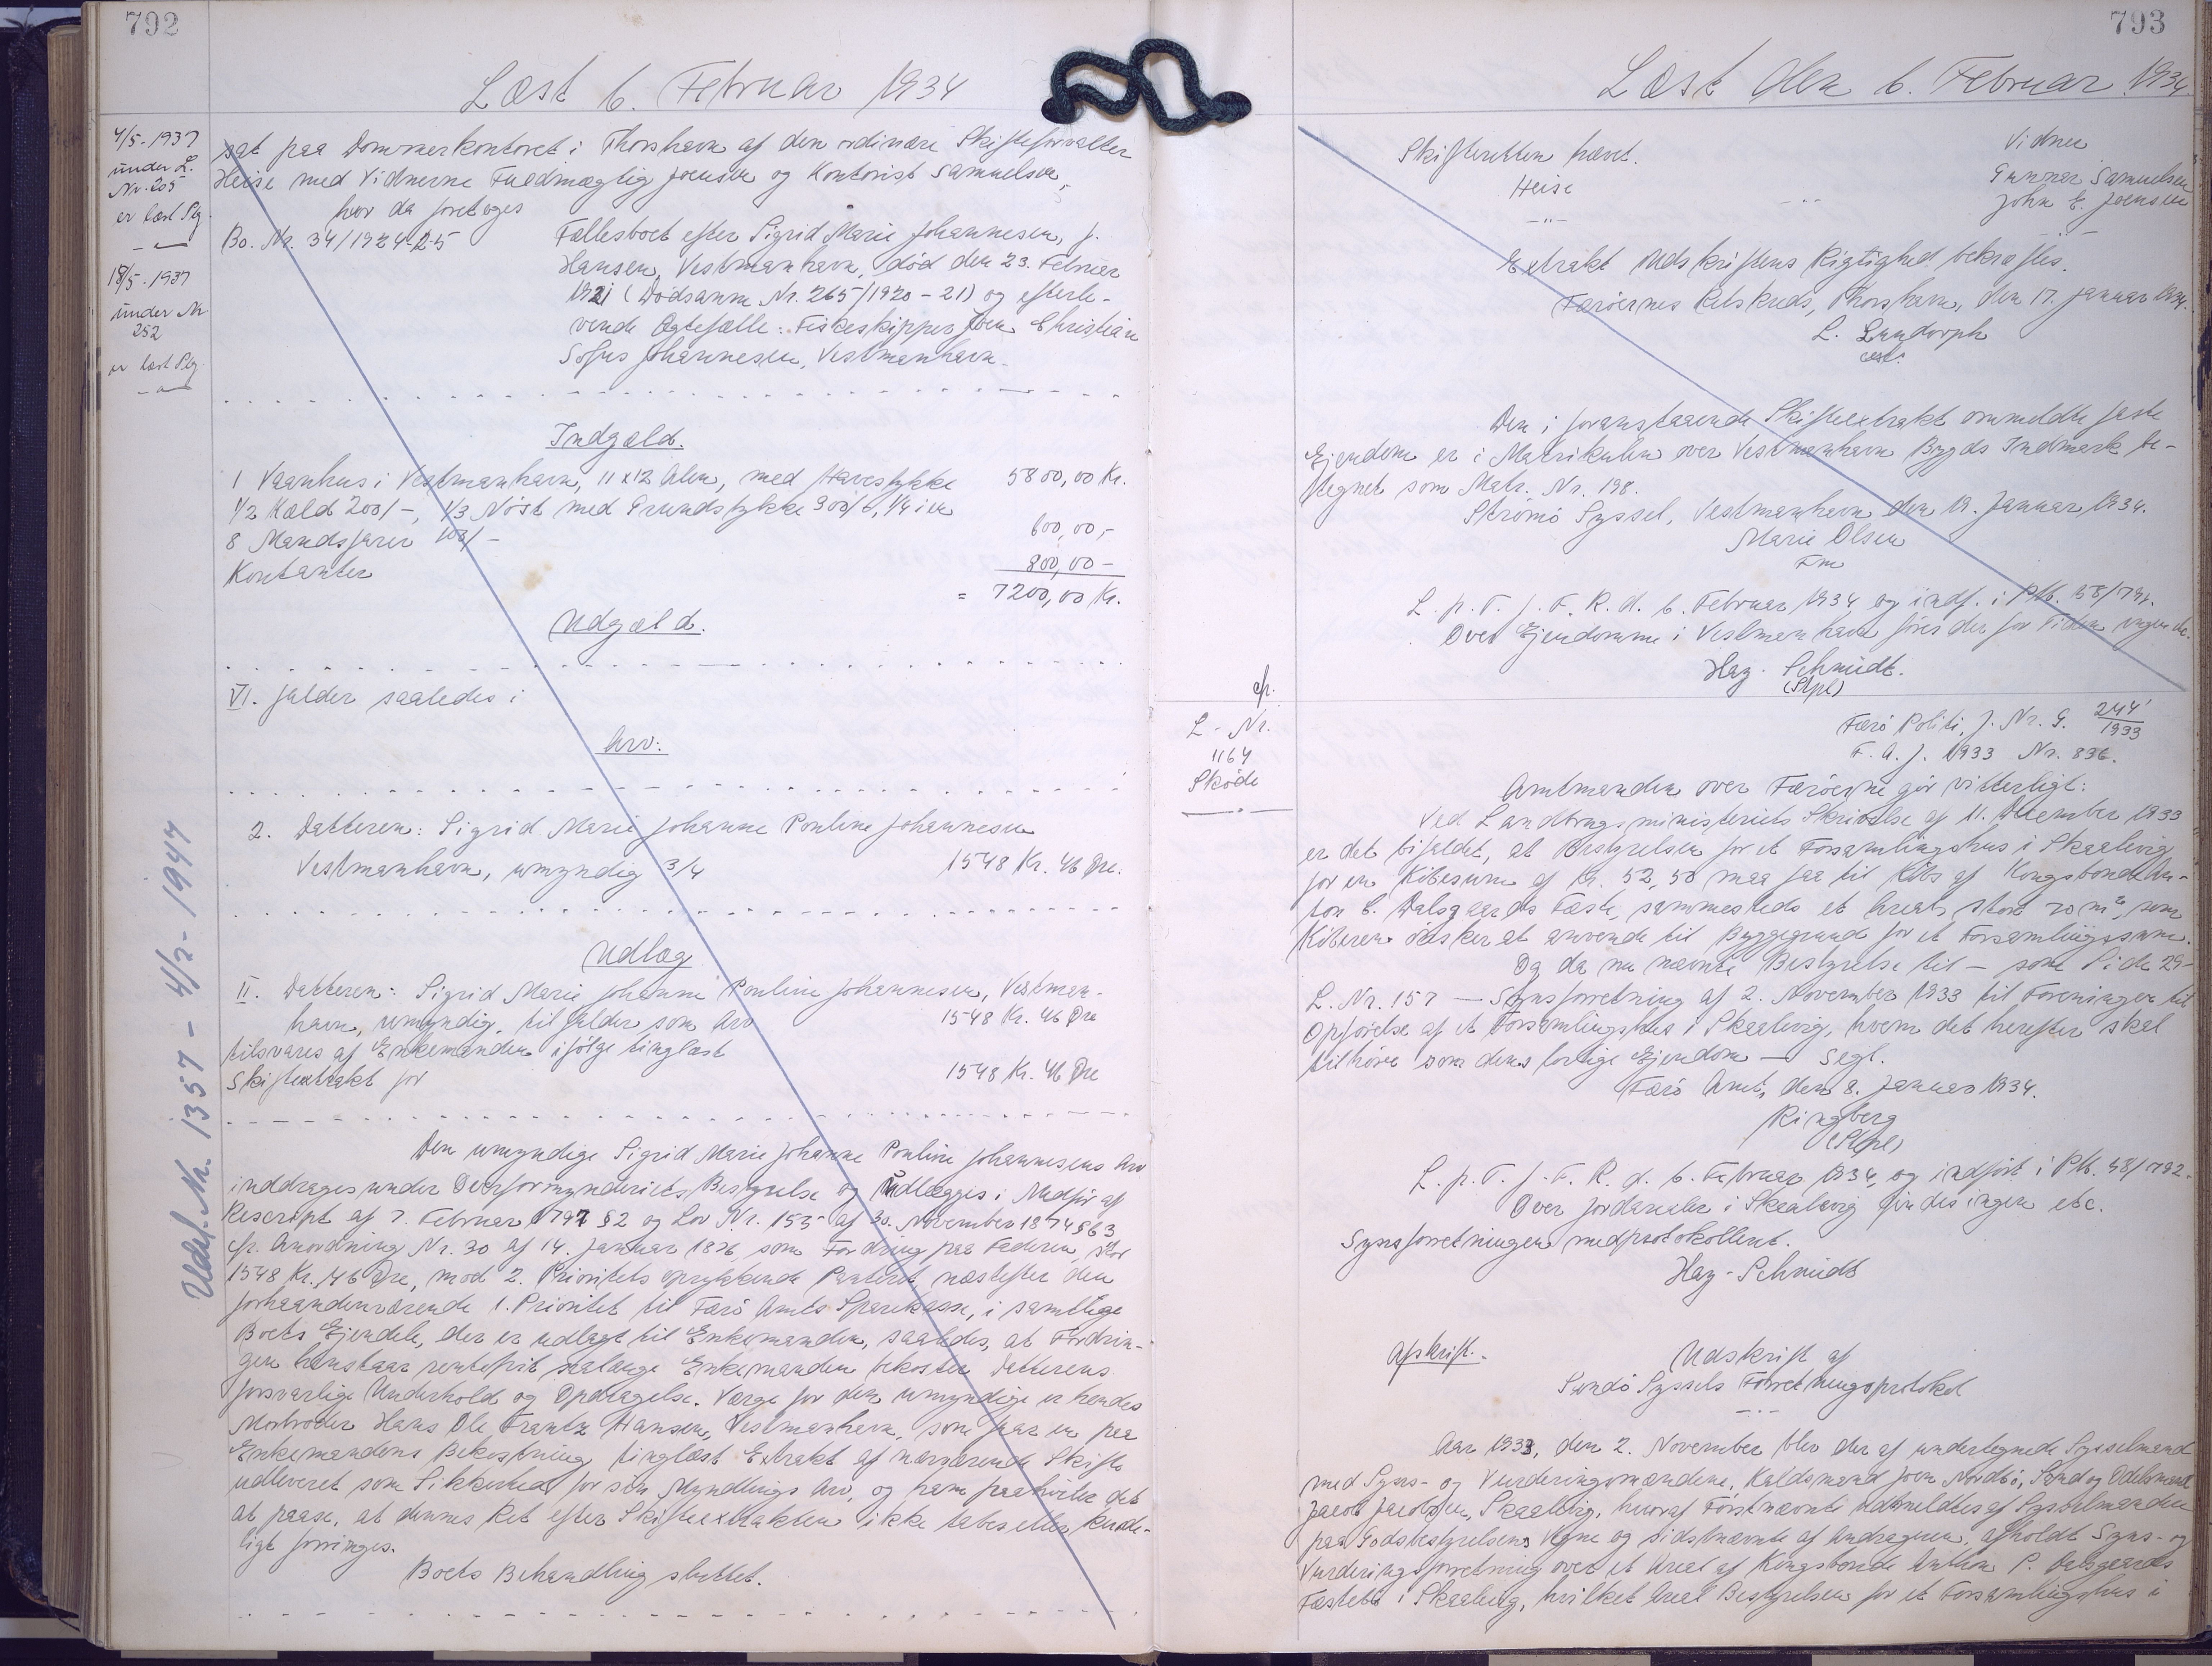 792
Læst 6. Februar 1934
4/5-1937
under L.
Nr. 205
er læst Plg.
18/5-1937
under Nr
252
er læst Plg.
Udsl. Nr. 1357 - 4/2-1944
sat paa Dommerkontoret i Thorshavn af den ordinære Skifteforvalter
Heise med Vidnerne Fuldmægtig Joensen og Kontorist Samuelsen,
hvor da foretoges
Bo. Nr. 34/1924-25
Fællesboet efter Sigrid Marie Johannesen, f.
Hansen, Vestmanhavn, død den 23. Februar
1921 (Dødsanm. Nr. 265/1920-21) og efterle-
vende Ægtefælle: Fiskeskipper Joen Christian
Sofus Johannesen, Vestmanhavn.
Indgæld.
1 Vaanhus i Vestmanhavn, 11 x 12 Alen, med Havestykke 5800,00 Kr.
1/2 Kæld 200/-, 1/3 Nøst med Grundstykke 300/-, 1/4 i en
8 Mandsfarer 100/- 600,00,-
Kontanter 800,00 -
= 7200,00 Kr.
Udgæld.
VI. falder saaledes i
Arv:
2. Datteren: Sigrid Marie Johanne Pouline Johannesen
Vestmanhavn, umyndig 3/4 1548 Kr. 46 Øre.
Udlæg
II. Datteren: Sigrid Marie Johanne Pouline Johannesen, Vestman-
havn, umyndig, tilfalder som Arv 1548 Kr. 46 Øre
tilsvares af Enkemanden ifølge tinglæst
Skifteextrakt for 1548 Kr. 46 Øre
Den umyndige Sigrid Marie Johanne Pouline Johannesens Arv
inddrages under Overformynderiets Bestyrelse og udlægges i Medfør af
Rescript af 7. Februar 1794 § 2 og Lov Nr. 155 af 30. November 1874 § 63
cfr. Anordning Nr. 30 af 14. Januar 1876 som Fordring paa Faderen, stor
1548 Kr. 46 Øre, mod 2. Prioritets oprykkende Panteret næstefter den
forhaandenværende 1. Prioritet til Færø Amts Sparekasse, i samtlige
Boets Ejendele, der er udlagt til Enkemanden, saaledes, at Fordrin-
gen henstaar rentefrit saalænge Enkemanden bekoster Datterens
forsvarlige Underhold og Opdragelse. Værge for den umyndige er hendes
Morbroder Hans Ole Frantz Hansen, Vestmanhavn, som faar en paa
Enkemandens Bekostning tinglæst Extrakt af nærværende Skifte
udleveret som Sikkerhed for sin Myndlings Arv, og ham paahviler det
at paase, at dennes Ret efter Skifteextrakten ikke tabes eller kende-
ligt forringes.
Boets Behandling sluttet.
793
Læst den 6. Februar 1934.
Skifteretten hævet.
Vidner
Heise
Gunnar Samuelsen
John E. Joensen
Extrakt Udskriftens Rigtighed bekræftes.
Færøernes Retskreds, Thorshavn, den 17. Januar 1934.
L. Lundorph
cst.
Den i foranstaaende Skifteextrakt ommeldte faste
Ejendom er i Matrikulen over Vestmanhavn Bygds Indmark be-
tegnet som Matr. Nr. 198.
Strømø Syssel, Vestmanhavn den 19. Januar 1934.
Marie Olsen
Fm
L. p. T. f. F. R. d. 6. Februar 1934 og indf. i Ptk. 58/791.
Over Ejendomme i Vestmanhavn føres der for Tiden ingen
Hag. Schmidt.
(Stpl)
cfr.
L - Nr.
1164
Skøde
Færø Politi, J. Nr. G. 244/1933
F. A. J. 1933 Nr. 836.
Amtmanden over Færøerne gør vitterligt:
Ved Landbrugsministeriets Skrivelse af 11. December 1933
er det bifaldet, at Bestyrelsen for et Forsamlingshus i Skaalevig
for en Købesum af Kr. 52,50 maa faa til Købs af Kongsbonde An-
ton P. Dalsgaards Fæste, sammesteds et Areal, stort 70 m², som
Køberen ønsker at anvende til Byggegrund for et Forsamlingshus.
Og da nu nævnte Bestyrelse til - som Side 29-
L. Nr. 157 - Synsforretning af 2. November 1933 til Foreningen til
Opførelse af et Forsamlingshus i Skaalevig, hvem det herefter skal
tilhøre som dens lovlige Ejendom - Segl.
Færø Amt, den 8. Januar 1934.
Ringberg
(Stpl)
L. p. T. f. F. R. d. 6. Februar 1934, og indført i Ptk. 58/792.
Over Jordarealer i Skaalevig findes ingen etc.
Synsforretningen medprotokolleret.
Hag-Schmidt
Afskrift.
Udskrift af
Sandø Syssels Forretningsprotokol
Aar 1933, den 2. November blev der af undertegnede Sysselmand
med Syns- og Vurderingsmændene, Kaldsmand Joen Nordbø, Sand og Odelsmand
Jacob Jacobsen, Skaalevig, hvoraf Førstnævnte udmeldtes af Sysselmanden
paa Godsbestyrelsens Vegne og sidstnævnte af Andrageren, afholdt Syns- og
Vurderingsforretning over et Areal af Kongsbonde Anthon P. Dalsgaards
Fæstebr i Skaalevig, hvilket Areal Bestyrelsen for et Forsamlingshus i